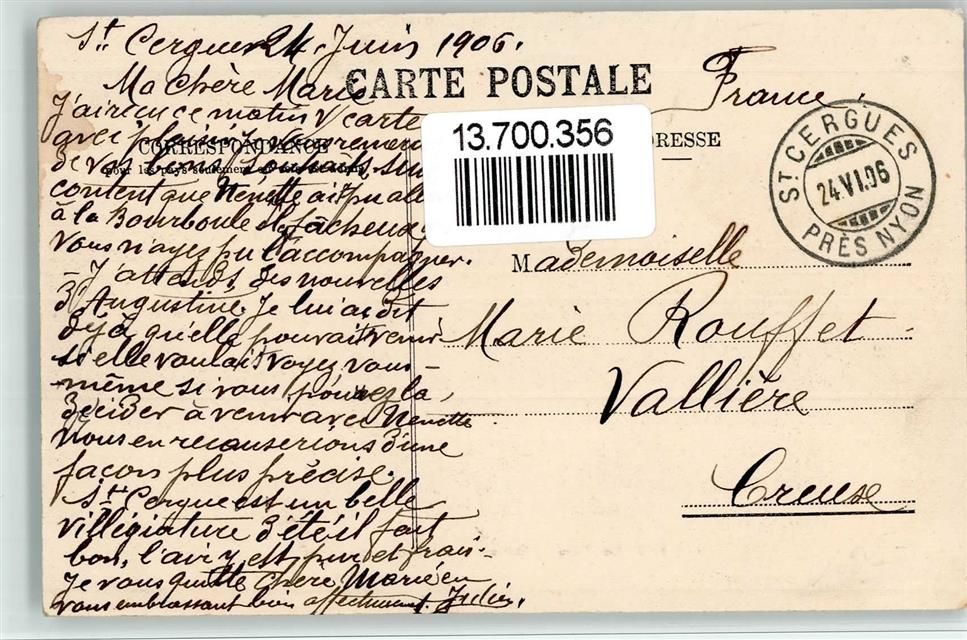 St. Cergues 24. Juin 1906.
CARTE POSTALE
France.
Ma Chère Marie
J'ai reçu ce matin V carte
avec plaisir, vous remerci
CORRESPONDANCE
de vos bons souhaits. suis
pour les pays seulement
content que Nénette ait pu alle
à la Bourboule et fâcheux q
vous n'ayez pu l'accompagner.
- J'attends des nouvelles
d'Augustine. Je lui ai dit
déjà qu'elle pourrait venir
si elle voulait voyez vous-
même si vous pouvez la
décider à venir avec Nenette
nous en recauserions d'une
façon plus précise.
St Cergue est un belle
villégiature d'été il fait
bon, l'air y est pur et frais-
Je vous quitte chère Marie en
vous embrassant bien affectument. Julien.
13.700.356
DRESSE
ST CERGUES
24.VI.06
PRÈS NYON
Mademoiselle
Marie Rouffet
Vallière
Creuse